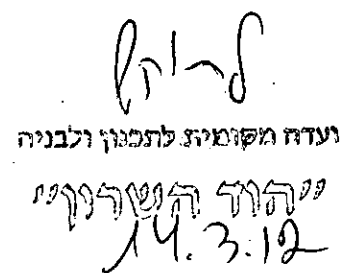 ועדה מקומית לתכנון ולבניה
"הוד השרון"
14.3.12